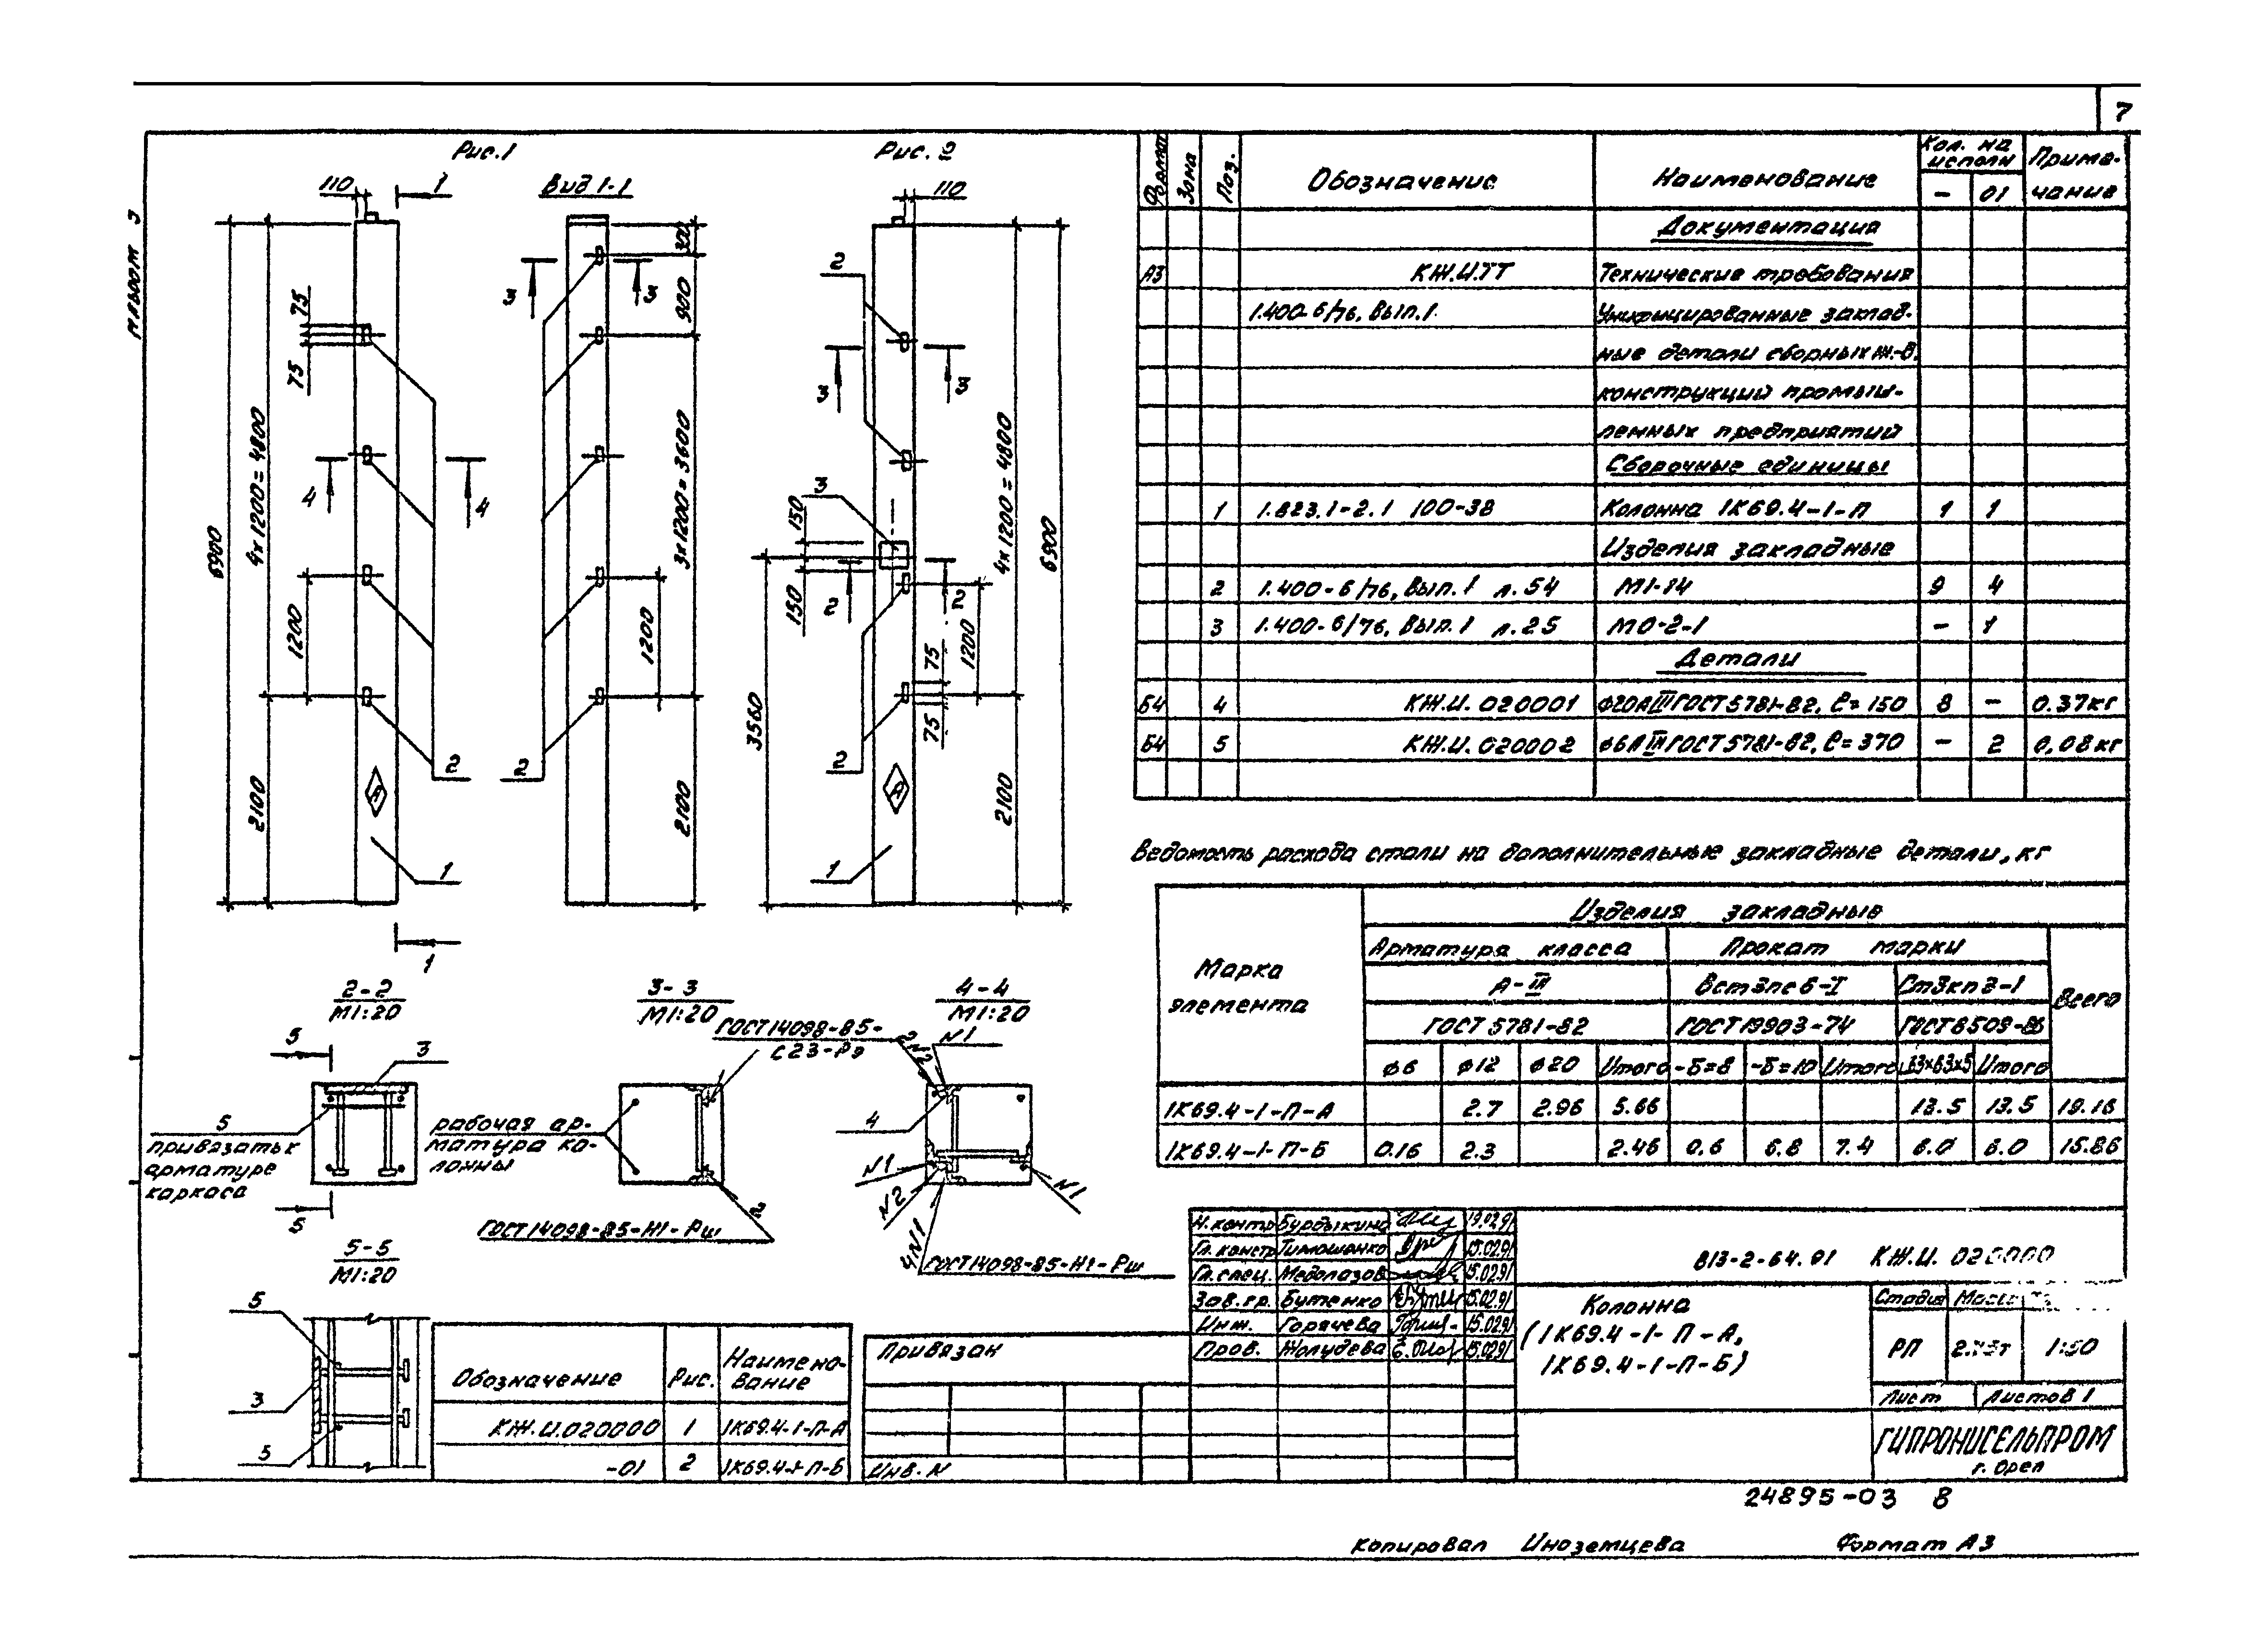 7
Альбом 3
Рис.1
Вид 1-1
Рис. 2
110
1
110
300
3
3
900
75
75
2
3
3
4х1200=4800
4
4
3х1200=3600
3
150
150
4х1200=4800
6900
6900
2
2
1200
1200
1200
75
75
3560
2
2
2
А
А
2100
2100
2100
1
1
1
2-2
М1:20
3-3
М1:20
4-4
М1:20
ГОСТ14098-85-
С23-Рэ
5
3
5
привязать к
арматуре
каркаса
5
рабочая ар-
матура ко-
лонны
2
ГОСТ14098-85-Н1-Рш
N2
N1
4
N1
N2
4N1
N1
ГОСТ14098-85-Н1-Рш
5-5
М1:20
5
3
5
Формат Зона Поз. Обозначение Наименование Кол. на исполн Приме-
- 01 чание
Документация
А3 КЖ.И.ТТ Технические требования
1.400-6/76, Вып.1. Унифицированные заклад-
ные детали сборных ж.-б.
конструкций промыш-
ленных предприятий
Сборочные единицы
1 1.823.1-2.1 100-38 Колонна 1К69.4-1-П 1 1
Изделия закладные
2 1.400-6/76, Вып.1 л.54 М1-14 9 4
3 1.400-6/76, Вып.1 л.25 М0-2-1 - 1
Детали
Б4 4 КЖ.И. 020001 ф20АIII ГОСТ5781-82, ℓ=150 8 - 0.37кг
Б4 5 КЖ.И. 020002 ф6АIII ГОСТ5781-82, ℓ=370 - 2 0,08кг
Ведомость расхода стали на дополнительные закладные детали, кг
Марка элемента Изделия закладные
Арматура класса Прокат марки Всего
А-III Вст3пс6-I Ст3кп2-1
ГОСТ 5781-82 ГОСТ19903-74 ГОСТ8509-86
ф6 ф12 ф20 Итого -Б=8 -Б=10 Итого L63х63х5 Итого
1К69.4-1-П-А 2.7 2.96 5.66 13.5 13.5 19.16
1К69.4-1-П-Б 0.16 2.3 2.46 0.6 6.8 7.4 6.0 6.0 15.86
Обозначение Рис. Наимено-
вание
КЖ.И.020000 1 1К69.4-1-П-А
-01 2 1К69.4-1-П-Б
Привязан
Инв. N
Н.контр Бурдыкина 19.02.91
Гл. констр Тимошенко 15.02.91
Гл.спец. Медолазов 15.02.91
Зав.гр. Бутенко 15.02.91
Инж. Горячева 15.02.91
Пров. Жолудева 15.02.91
813-2-64.91 КЖ.И. 020000
Колонна
(1К69.4-1-П-А,
1К69.4-1-П-Б)
Стадия Масса
РП 1:50
Лист Листов 1
ГИПРОНИСЕЛЬПРОМ
г. Орел
24895-03 8
Копировал Иноземцева Формат А3